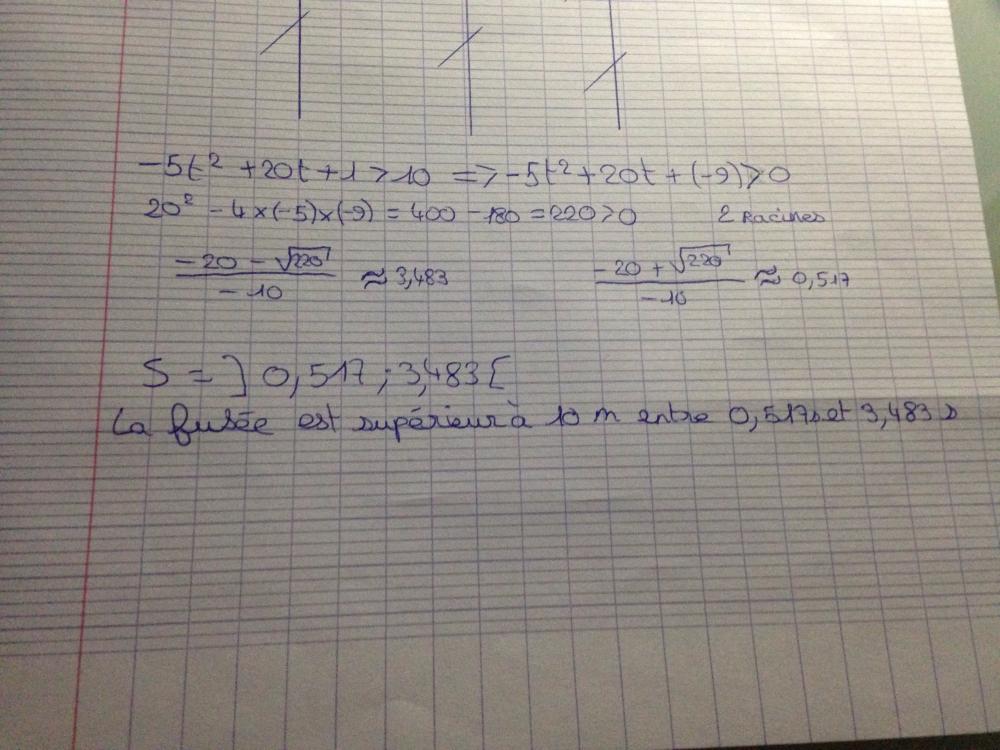 -5t² + 20t + 1 > 10 => -5t² + 20t + (-9) > 0
20² - 4 × (-5) × (-9) = 400 - 180 = 220 > 0 2 Racines
(-20 - √220) / -10 ≈ 3,483 (-20 + √220) / -10 ≈ 0,517
S = ]0,517 ; 3,483[
La fusée est supérieur à 10 m entre 0,517s et 3,483 s